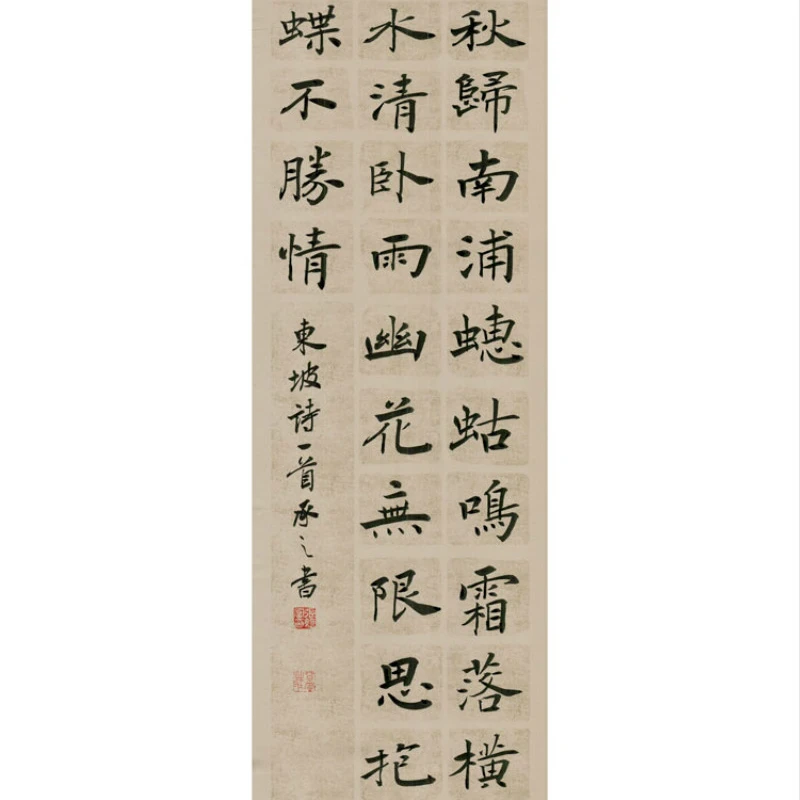 秋歸南浦蟪蛄鳴霜落橫
水清卧雨幽花無限思抱
蝶不勝情
東坡詩一首承之書